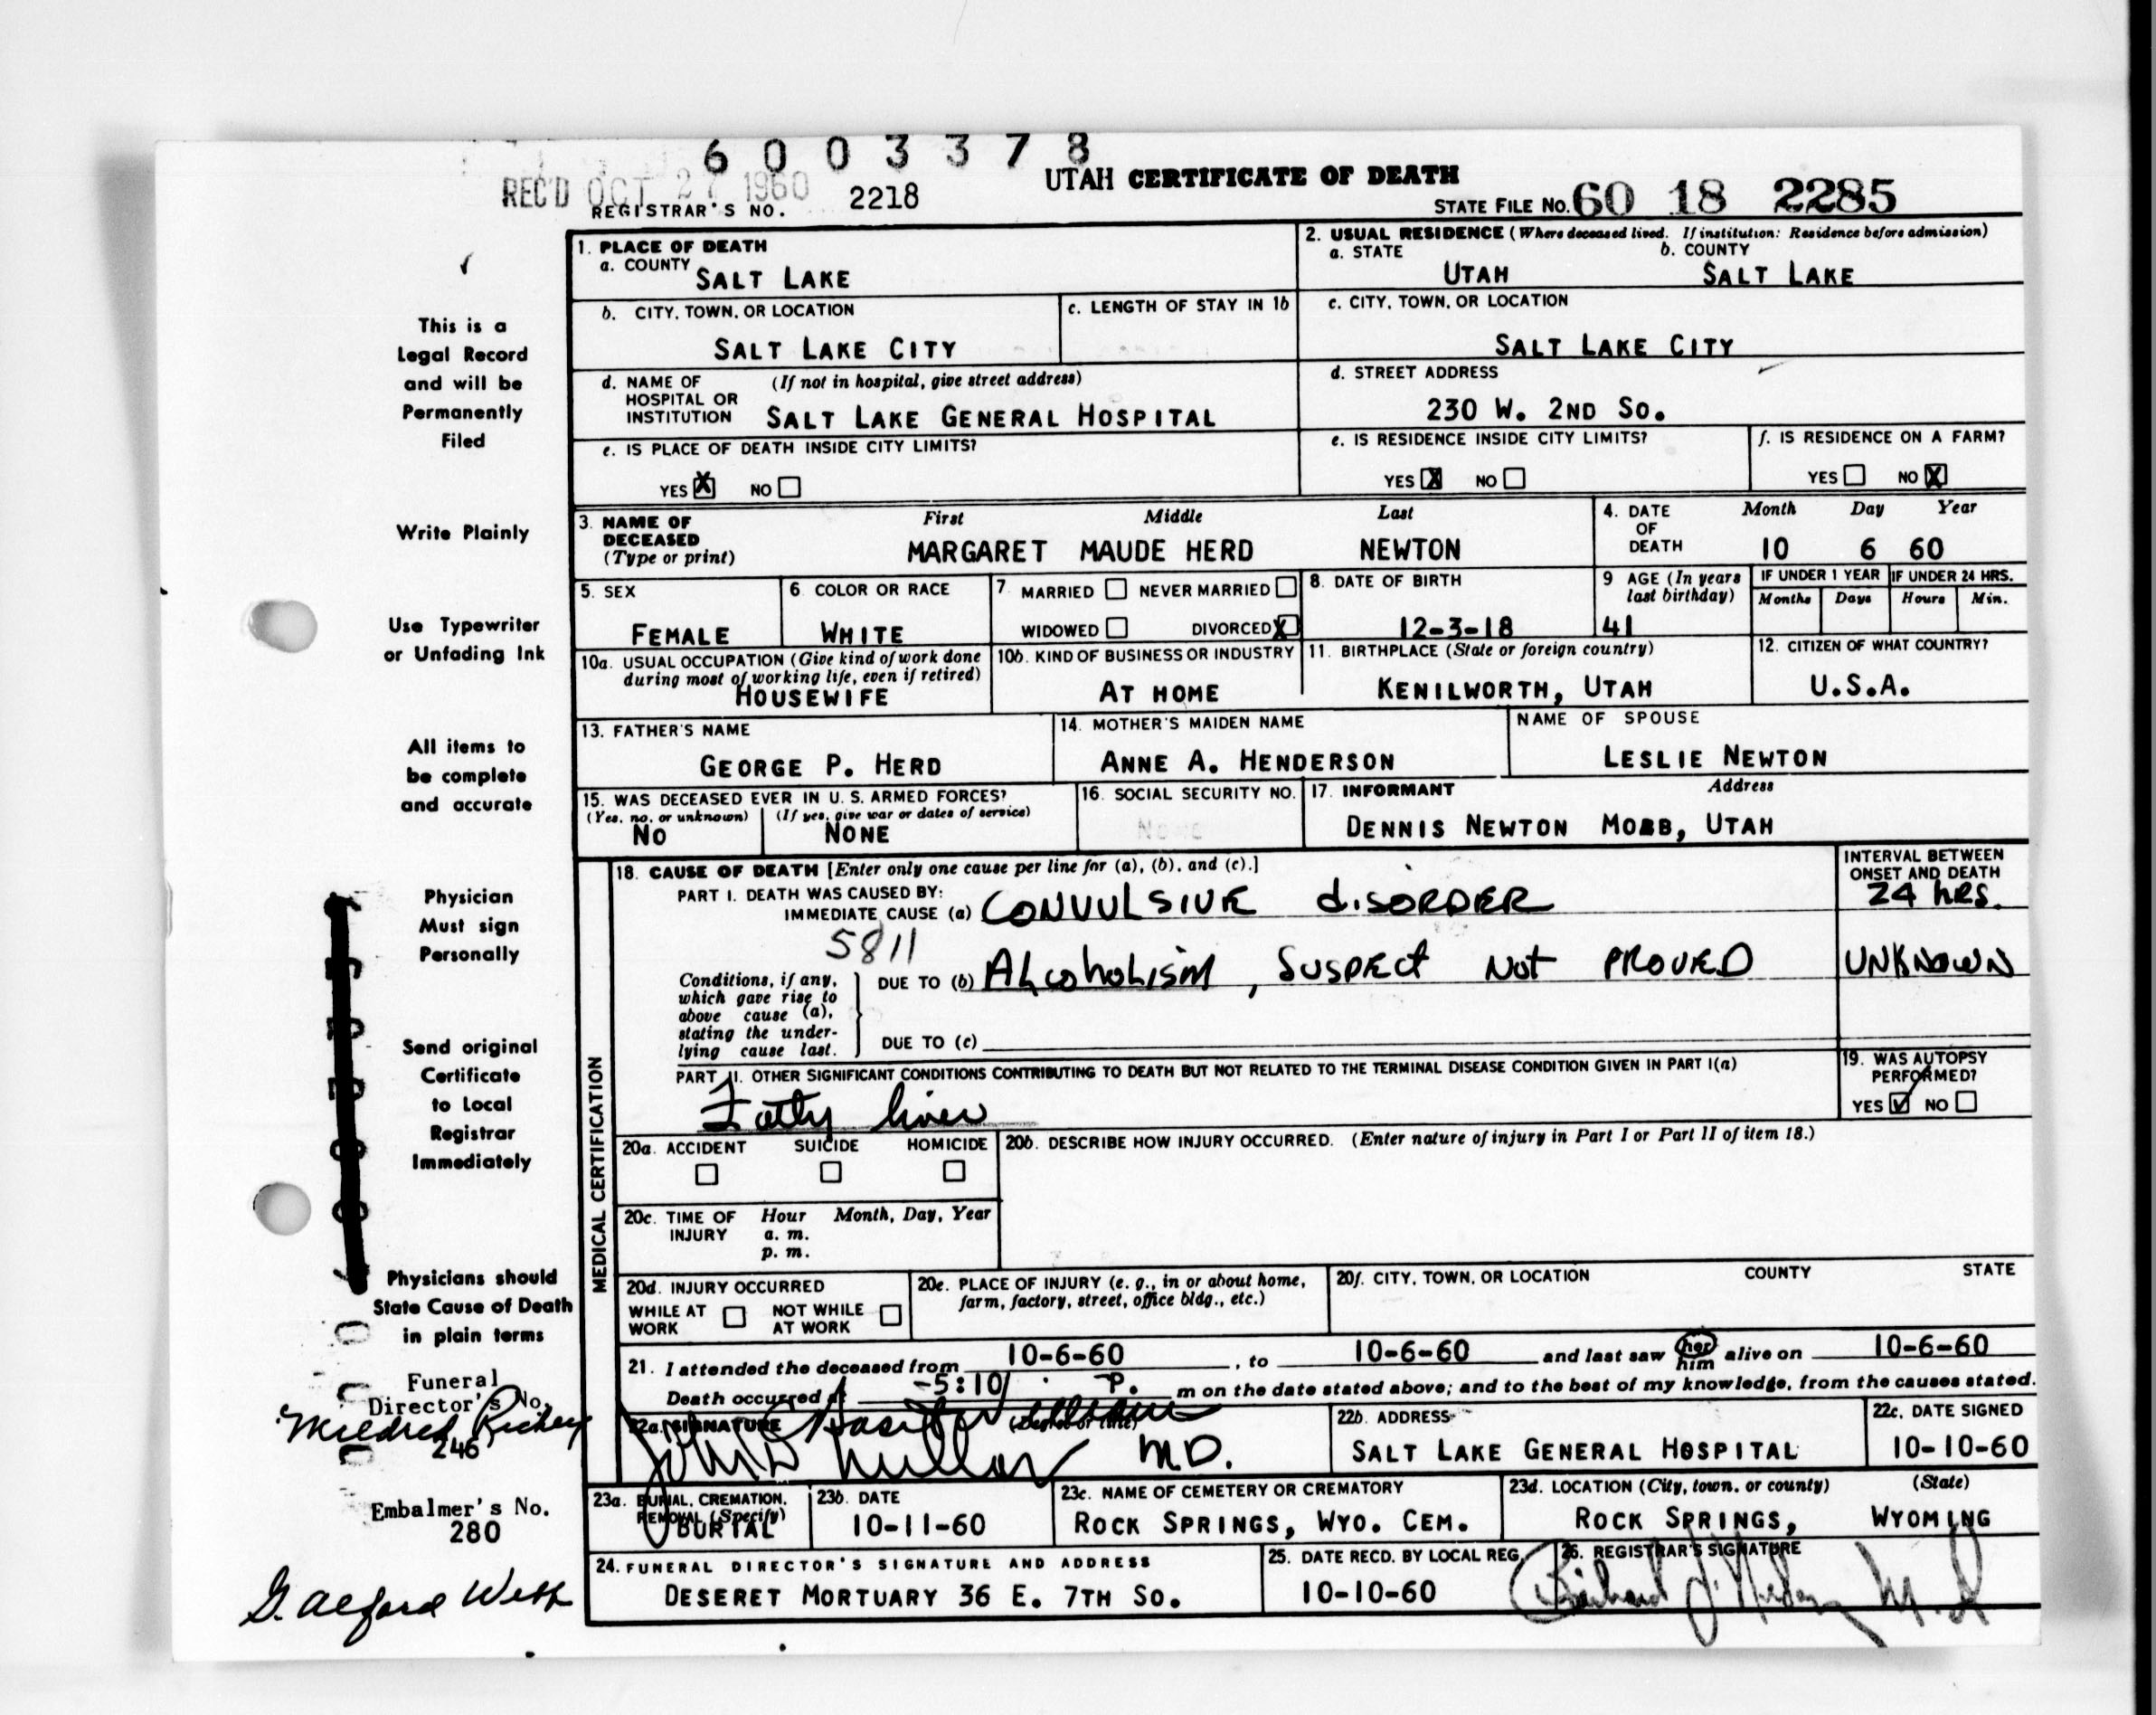 6 0 0 3 3 7 8
REC'D OCT 27 1960
REGISTRAR'S NO. 2218
UTAH CERTIFICATE OF DEATH
STATE FILE NO. 60 18 2285
This is a
Legal Record
and will be
Permanently
Filed
Write Plainly
Use Typewriter
or Unfading Ink
All items to
be complete
and accurate
Physician
Must sign
Personally
Send original
Certificate
to Local
Registrar
Immediately
Physicians should
State Cause of Death
in plain terms
Funeral
Director's No.
Mildred Richey
246
Embalmer's No.
280
1. PLACE OF DEATH
a. COUNTY SALT LAKE
2. USUAL RESIDENCE (Where deceased lived. If institution: Residence before admission)
a. STATE UTAH b. COUNTY SALT LAKE
b. CITY, TOWN, OR LOCATION SALT LAKE CITY
c. LENGTH OF STAY IN 1b
c. CITY, TOWN, OR LOCATION SALT LAKE CITY
d. NAME OF HOSPITAL OR INSTITUTION (If not in hospital, give street address) SALT LAKE GENERAL HOSPITAL
d. STREET ADDRESS 230 W. 2ND SO.
e. IS PLACE OF DEATH INSIDE CITY LIMITS?
YES X NO
e. IS RESIDENCE INSIDE CITY LIMITS?
YES X NO
f. IS RESIDENCE ON A FARM?
YES NO X
3. NAME OF DECEASED (Type or print)
First Middle Last
MARGARET MAUDE HERD NEWTON
4. DATE OF DEATH Month Day Year
10 6 60
5. SEX FEMALE
6. COLOR OR RACE WHITE
7. MARRIED NEVER MARRIED
WIDOWED DIVORCED X
8. DATE OF BIRTH 12-3-18
9 AGE (In years last birthday) 41
IF UNDER 1 YEAR Months Days
IF UNDER 24 HRS. Hours Min.
10a. USUAL OCCUPATION (Give kind of work done during most of working life, even if retired) HOUSEWIFE
10b. KIND OF BUSINESS OR INDUSTRY AT HOME
11. BIRTHPLACE (State or foreign country) KENILWORTH, UTAH
12. CITIZEN OF WHAT COUNTRY? U.S.A.
13. FATHER'S NAME GEORGE P. HERD
14. MOTHER'S MAIDEN NAME ANNE A. HENDERSON
NAME OF SPOUSE LESLIE NEWTON
15. WAS DECEASED EVER IN U. S. ARMED FORCES?
(Yes, no, or unknown) NO
(If yes, give war or dates of service) NONE
16. SOCIAL SECURITY NO. None
17. INFORMANT Address
DENNIS NEWTON MOAB, UTAH
MEDICAL CERTIFICATION
18. CAUSE OF DEATH [Enter only one cause per line for (a), (b), and (c).]
PART I. DEATH WAS CAUSED BY:
IMMEDIATE CAUSE (a) CONVULSIVE disORDER
INTERVAL BETWEEN ONSET AND DEATH
24 hrs.
5811
Conditions, if any, which gave rise to above cause (a), stating the underlying cause last.
DUE TO (b) Alcoholism, Suspect Not PROVED
UNKNOWN
DUE TO (c)
PART II. OTHER SIGNIFICANT CONDITIONS CONTRIBUTING TO DEATH BUT NOT RELATED TO THE TERMINAL DISEASE CONDITION GIVEN IN PART I(a)
Fatty liver
19. WAS AUTOPSY PERFORMED?
YES ✓ NO
20a. ACCIDENT SUICIDE HOMICIDE
20b. DESCRIBE HOW INJURY OCCURRED. (Enter nature of injury in Part I or Part II of item 18.)
20c. TIME OF INJURY Hour Month, Day, Year
a. m.
p. m.
20d. INJURY OCCURRED
WHILE AT WORK NOT WHILE AT WORK
20e. PLACE OF INJURY (e. g., in or about home, farm, factory, street, office bldg., etc.)
20f. CITY, TOWN, OR LOCATION COUNTY STATE
21. I attended the deceased from 10-6-60, to 10-6-60 and last saw her him alive on 10-6-60
Death occurred at -5:10 P. m on the date stated above; and to the best of my knowledge, from the causes stated.
22a. SIGNATURE (Degree or title)
M.D.
22b. ADDRESS SALT LAKE GENERAL HOSPITAL
22c. DATE SIGNED 10-10-60
23a. BURIAL, CREMATION, REMOVAL (Specify) BURIAL
23b. DATE 10-11-60
23c. NAME OF CEMETERY OR CREMATORY ROCK SPRINGS, WYO. CEM.
23d. LOCATION (City, town, or county) (State)
ROCK SPRINGS, WYOMING
24. FUNERAL DIRECTOR'S SIGNATURE AND ADDRESS
DESERET MORTUARY 36 E. 7TH SO.
25. DATE RECD. BY LOCAL REG. 10-10-60
26. REGISTRAR'S SIGNATURE